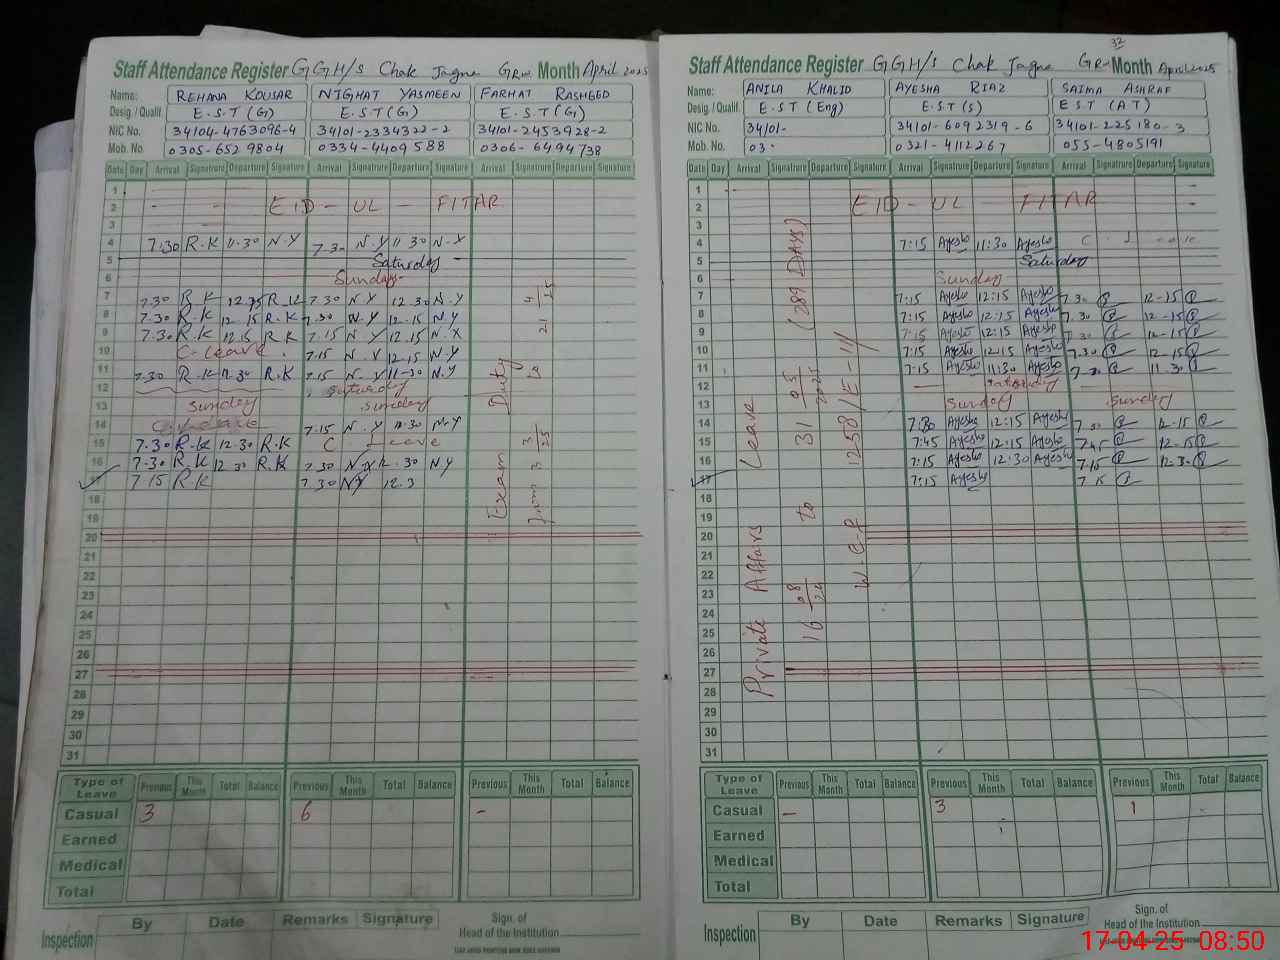 Staff Attendance Register GGH/S Chak Jagna GRW Month April 2025
Name: REHANA KOUSAR NIGHAT YASMEEN FARHAT RASHEED
Desig./Qualif. E.S.T (G) E.S.T (G) E.S.T (G)
NIC No. 34104-4763096-4 34101-2334322-2 34101-2453928-2
Mob. No. 0305-6529804 0334-4409588 0306-6494738
Date Day Arrival Signature Departure Signature Arrival Signature Departure Signature Arrival Signature Departure Signature
1
2 EID - UL - FITAR
3
4 7:30 R.K 11-30 N.Y 7-30 N.Y 11-30 N.Y
5 Saturday
6 Sunday
7 7.30 R.K R.K 7.30 N.Y 12.30 N.Y
8 7.30 R.K 12.15 R.K 7.30 N.Y 12.15 N.Y
9 7.30 R.K 12.15 R.K 7.15 N.Y 12.15 N.Y
10 C-Leave. 7.15 N.Y 12-15 N.Y
11 7.30 R.K 11.30 R.K 7.15 N.Y 11-30 N.Y
12 Saturday
13 Sunday Sunday
14 7.15 N.Y N.Y
15 7.30 R.K 12.30 R.K C Leave
16 7.30 R.K 12.30 R.K 7.30 N.Y 12.30 N.Y
17 7.15 R.K 7.30 N.Y 12.3
18
19
20
21
22
23
24
25
26
27
28
29
30
31
Exam Duty
from 3 3/25 to 21 4/25
Type of Leave Previous This Month Total Balance Previous This Month Total Balance Previous This Month Total Balance
Casual 3 6 -
Earned
Medical
Total
Inspection By Date Remarks Signature
Sign. of
Head of the Institution
32
Staff Attendance Register GGH/S Chak Jagna GRW Month April 2025
Name: ANILA KHALID AYESHA RIAZ SAIMA ASHRAF
Desig./Qualif. E.S.T (Eng) E.S.T (S) EST (AT)
NIC No. 34101- 34101-6092319-6 34101-225180-3
Mob. No. 03- 0321-4112267 055-4805191
Date Day Arrival Signature Departure Signature Arrival Signature Departure Signature Arrival Signature Departure Signature
1
2 EID - UL - FITAR
3
4 7:15 Ayesha 11:30 Ayesha
5 Saturday
6 Sunday
7 7:15 Ayesha 12:15 Ayesha 7.30 12-15
8 7:15 Ayesha 12:15 Ayesha 7.30 12-15
9 7:15 Ayesha 12:15 Ayesha 7.30 12-15
10 7:15 Ayesha 12:15 Ayesha 7.30 12-15
11 7:15 Ayesha 11:30 Ayesha 11.30
12 Saturday
13 Sunday Sunday
14 7:30 Ayesha 12:15 Ayesha 12-15
15 7:45 Ayesha 12:15 Ayesha 7.45 12-15
16 7:15 Ayesha 12:30 Ayesha 7.15 12.30
17 7:15 Ayesha 7.15
18
19
20
21
22
23
24
25
26
27
28
29
30
31
Private Affairs Leave
16 08/24 to 31 05/2025 (289 DAYS)
W.e.f 1258/E-III
Type of Leave Previous This Month Total Balance Previous This Month Total Balance Previous This Month Total Balance
Casual - 3 1
Earned
Medical
Total
Inspection By Date Remarks Signature
Sign. of
Head of the Institution
17-04-25 08:50